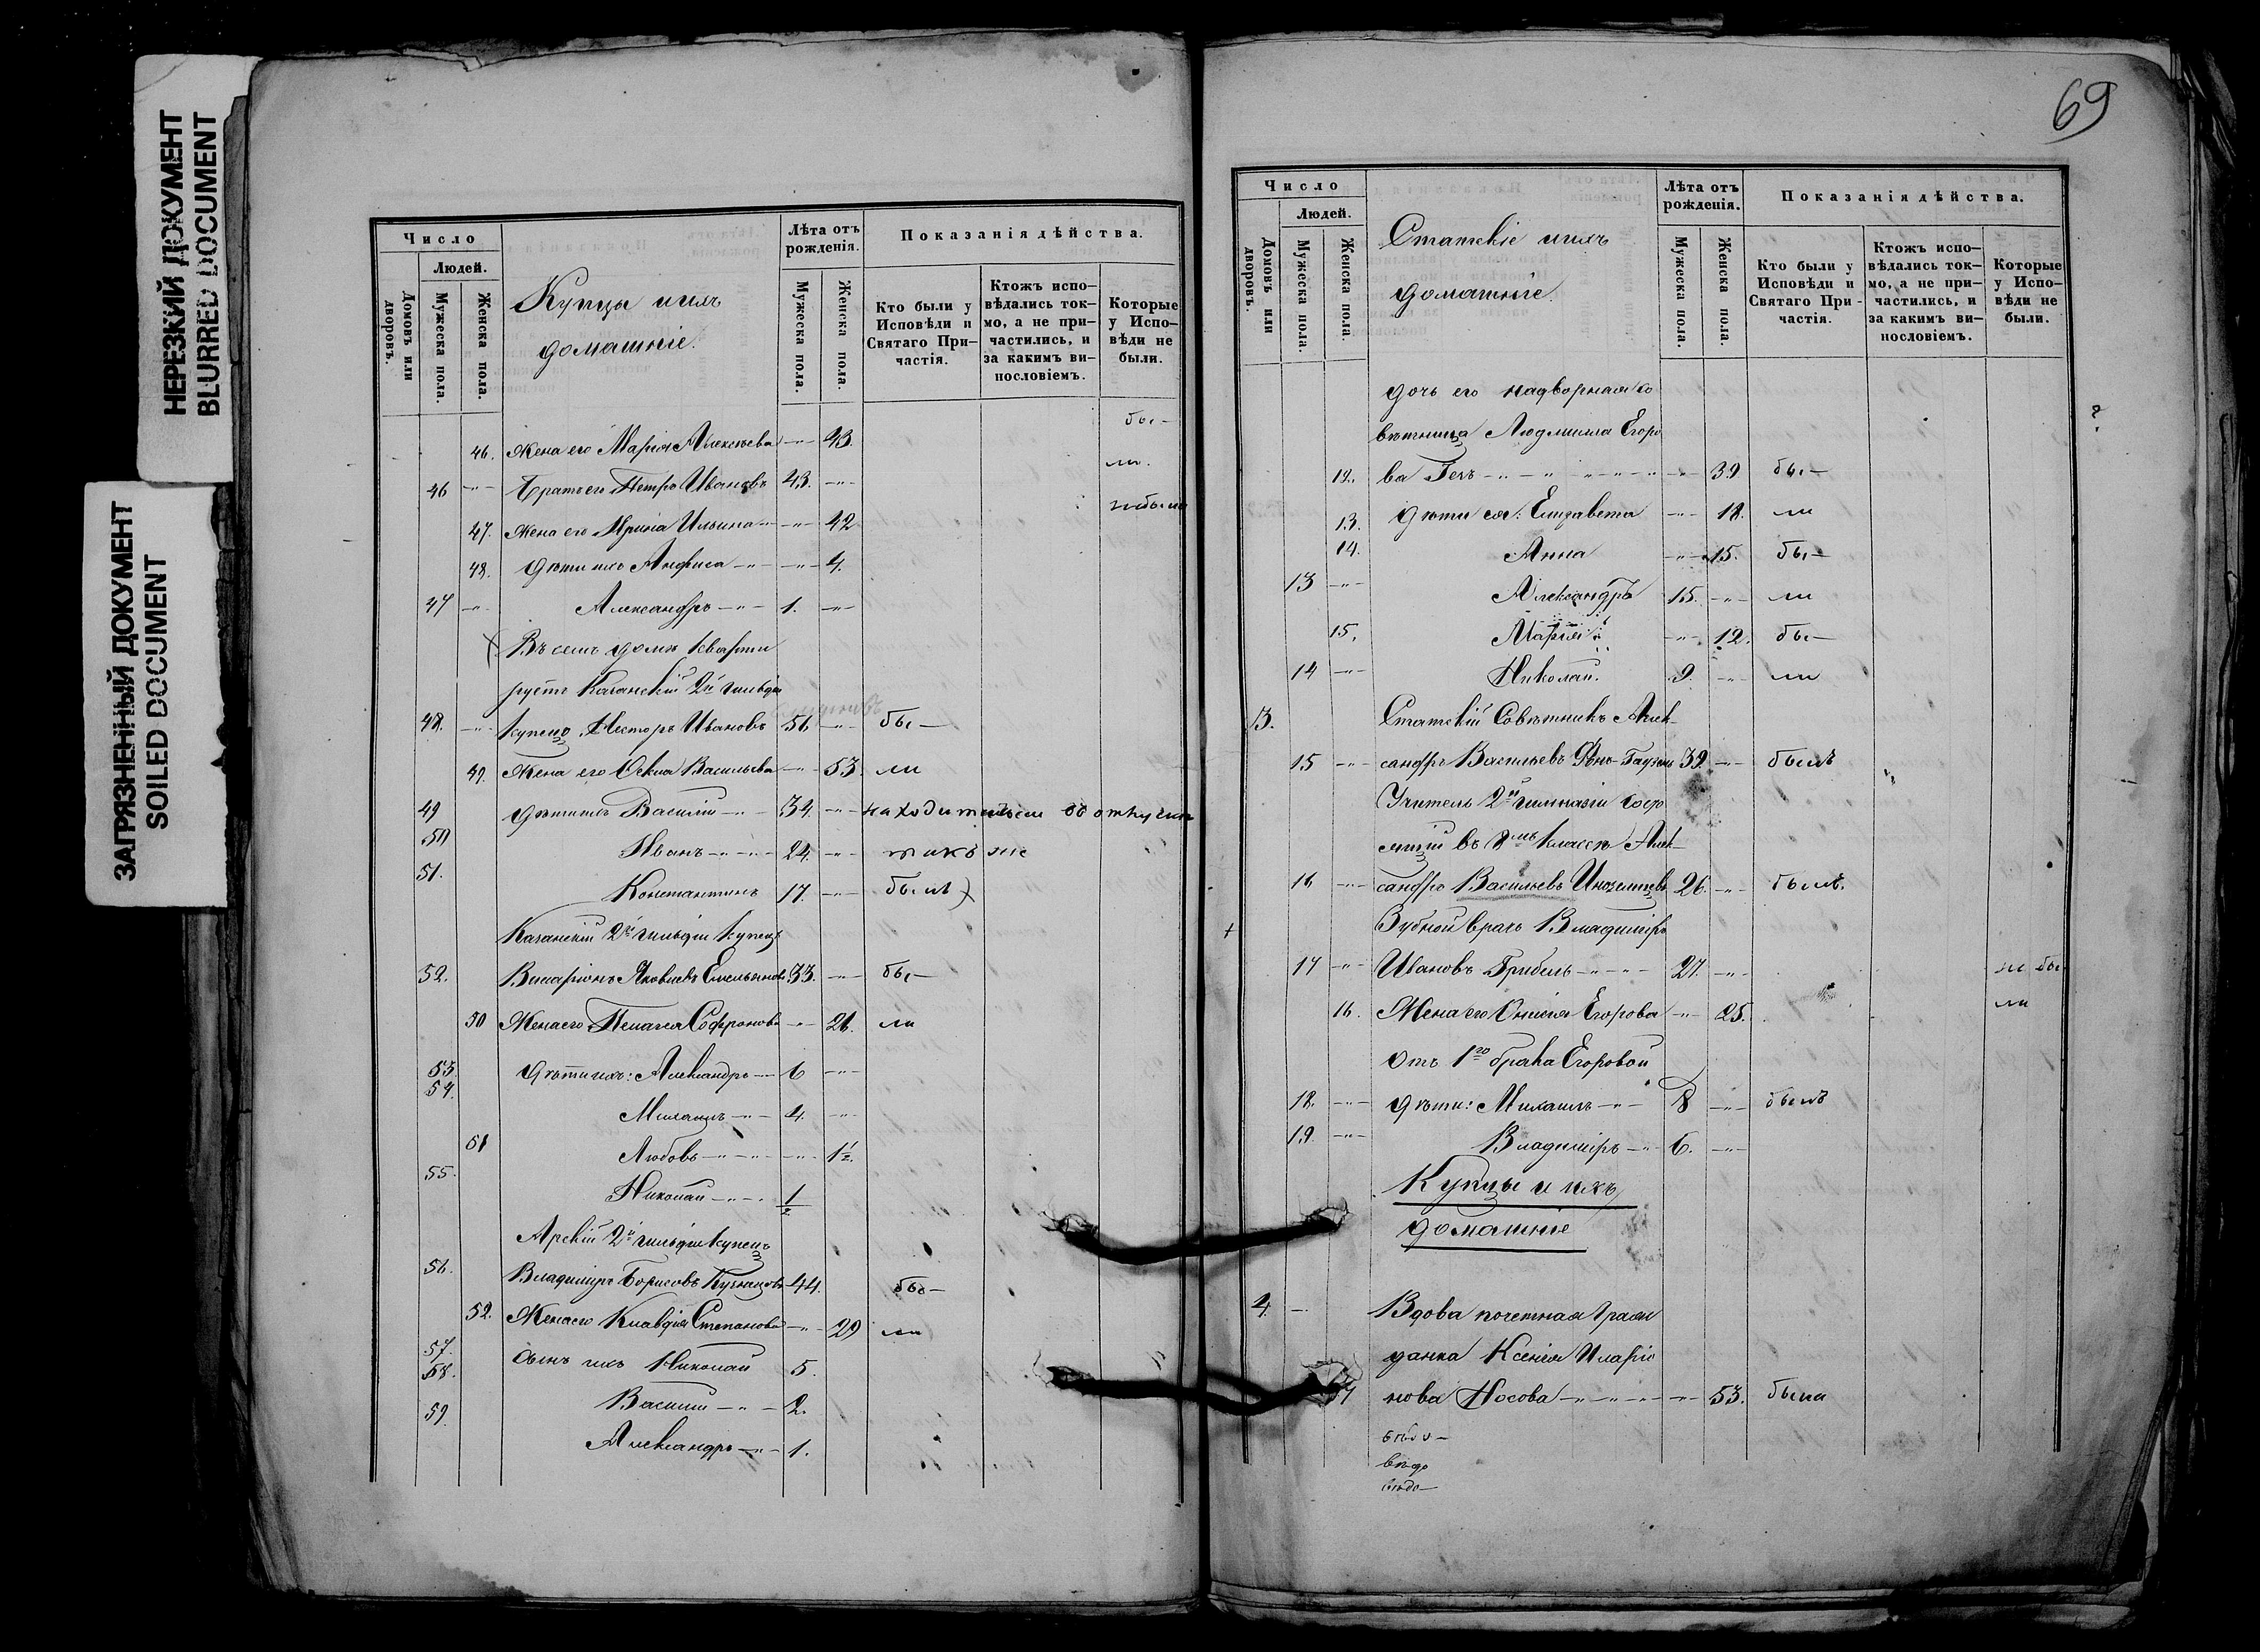 НЕРЕЗКИЙ ДОКУМЕНТ
BLURRED DOCUMENT
ЗАГРЯЗНЕННЫЙ ДОКУМЕНТ
SOILED DOCUMENT
Число
Людей.
Домовъ или дворовъ.
Мужеска пола.
Женска пола.
Купцы и ихъ
домашніе.
Лѣта отъ рожденія.
Мужеска пола.
Женска пола.
Показанія дѣйства.
Кто были у Исповѣди и Святаго При-частія.
Ктожъ испо-вѣдались ток-мо, а не при-частились, и за какимъ ви-нословіемъ.
Которые у Испо-вѣди не были.
46. Жена его Марія Алексѣева 43. бы-
46 Братъ его Петръ Ивановъ 43. ли.
47. Жена его Ирина Ильина 42 не были
48. Дѣти ихъ Анфиса 4.
47 Александръ 1.
Въ семъ домѣ кварти
руетъ Казанскій 2й гильдіи
48. купецъ Несторъ Ивановъ 56 бы-
49. Жена его Васильева 53. ли
49 Дѣти ихъ Василій 34. находится въ отлучкѣ
50 Иванъ 24. также
51. Константинъ 17. былъ
Казанскій 2й гильдіи купецъ
52. Иларіонъ Яковлевъ Емельяновъ 33. бы-
50 Жена его Пелагея Софронова 26. ли
53 Дѣти ихъ: Александръ 6
54. Михаилъ 4.
51 Любовь 1½.
55. Николай ½
Арскій 2й гильдіи купецъ
56. Владиміръ Борисовъ Кузнецовъ 44. бы-
52. Жена его Клавдія Степанова 29 ли
57. Сынъ ихъ Николай 5.
58. Василій 2.
59. Александръ 1.
69
Число
Людей.
Домовъ или дворовъ.
Мужеска пола.
Женска пола.
Статскіе и ихъ
домашніе.
Лѣта отъ рожденія.
Мужеска пола.
Женска пола.
Показанія дѣйства.
Кто были у Исповѣди и Святаго При-частія.
Ктожъ испо-вѣдались ток-мо, а не при-частились, и за какимъ ви-нословіемъ.
Которые у Испо-вѣди не были.
дочь его надворная со
вѣтница Людмила Егоро
12. ва 39 бы-
13. Дѣти ея: Елизавета 18. ли
14. Анна 15. бы-
13 Александръ 15. ли
15. Марія 12. бы-
14 Николай. 9. ли
3. Статскій Совѣтникъ Алек-
15 сандръ Васильевъ Фонъ- 39. былъ
Учитель 2й гимназіи состо
ящій въ 8мъ классѣ Алек-
16 сандръ Васильевъ Иноземцевъ 26. былъ.
Зубной врачъ Владиміръ
17 Ивановъ Грибель 27. не бы-
16. Жена его Егорова 25. ли
Отъ 1го брака Егоровой
18. дѣти: Михаилъ 8 былъ
19. Владиміръ 6.
Купцы и ихъ
домашніе
4. Вдова почетная граж
данка Ксенія Иларіо
17 нова Носова 53. была